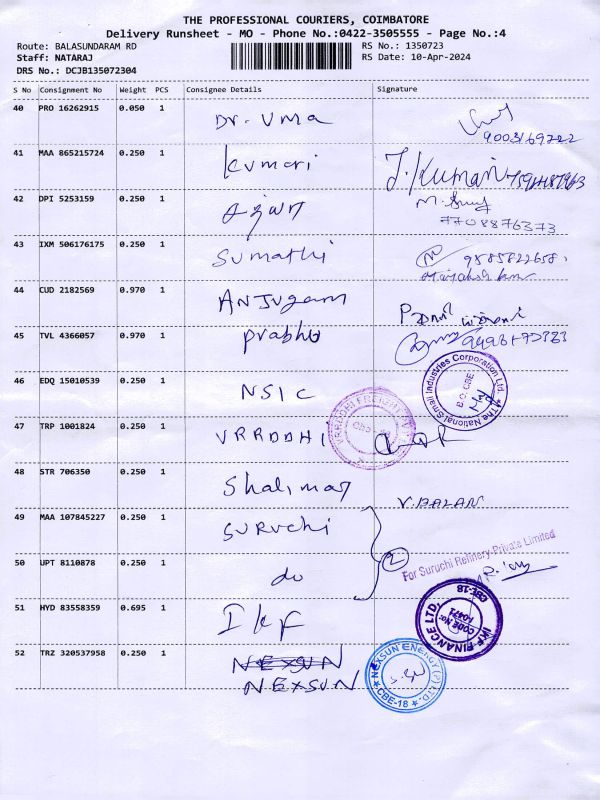 THE PROFESSIONAL COURIERS, COIMBATORE
Delivery Runsheet - MO - Phone No.:0422-3505555 - Page No.:4
Route: BALASUNDARAM RD
Staff: NATARAJ
DRS No.: DCJB135072304
RS No.: 1350723
RS Date: 10-Apr-2024
S No Consignment No Weight PCS Consignee Details Signature
40 PRO 16262915 0.050 1 Dr. Uma
9003169222
41 MAA 865215724 0.250 1 Kumari J. Kumari
42 DPI 5253159 0.250 1
7708876373
43 IXM 506176175 0.250 1 Sumathi 9885822658
44 CUD 2182569 0.970 1 Anjugam
45 TVL 4366057 0.970 1 Prabhu
46 EDQ 15010539 0.250 1 NSIC
The National Small Industries Corporation Ltd. B.O. CBE
47 TRP 1001824 0.250 1 VRRDDHI
VRRDDHI FREIGHT
48 STR 706350 0.250 1 Shalimar
V. BALAN
49 MAA 107845227 0.250 1 Suruchi
50 UPT 8110878 0.250 1 do 2
For Suruchi Refinery Private Limited
51 HYD 83558359 0.695 1 IKF
IKF FINANCE LTD. CODE No: 10471 CBE-18
52 TRZ 320537958 0.250 1 NEXSUN
NEXSUN
NEXSUN ENERGY (P) LTD. CBE-18